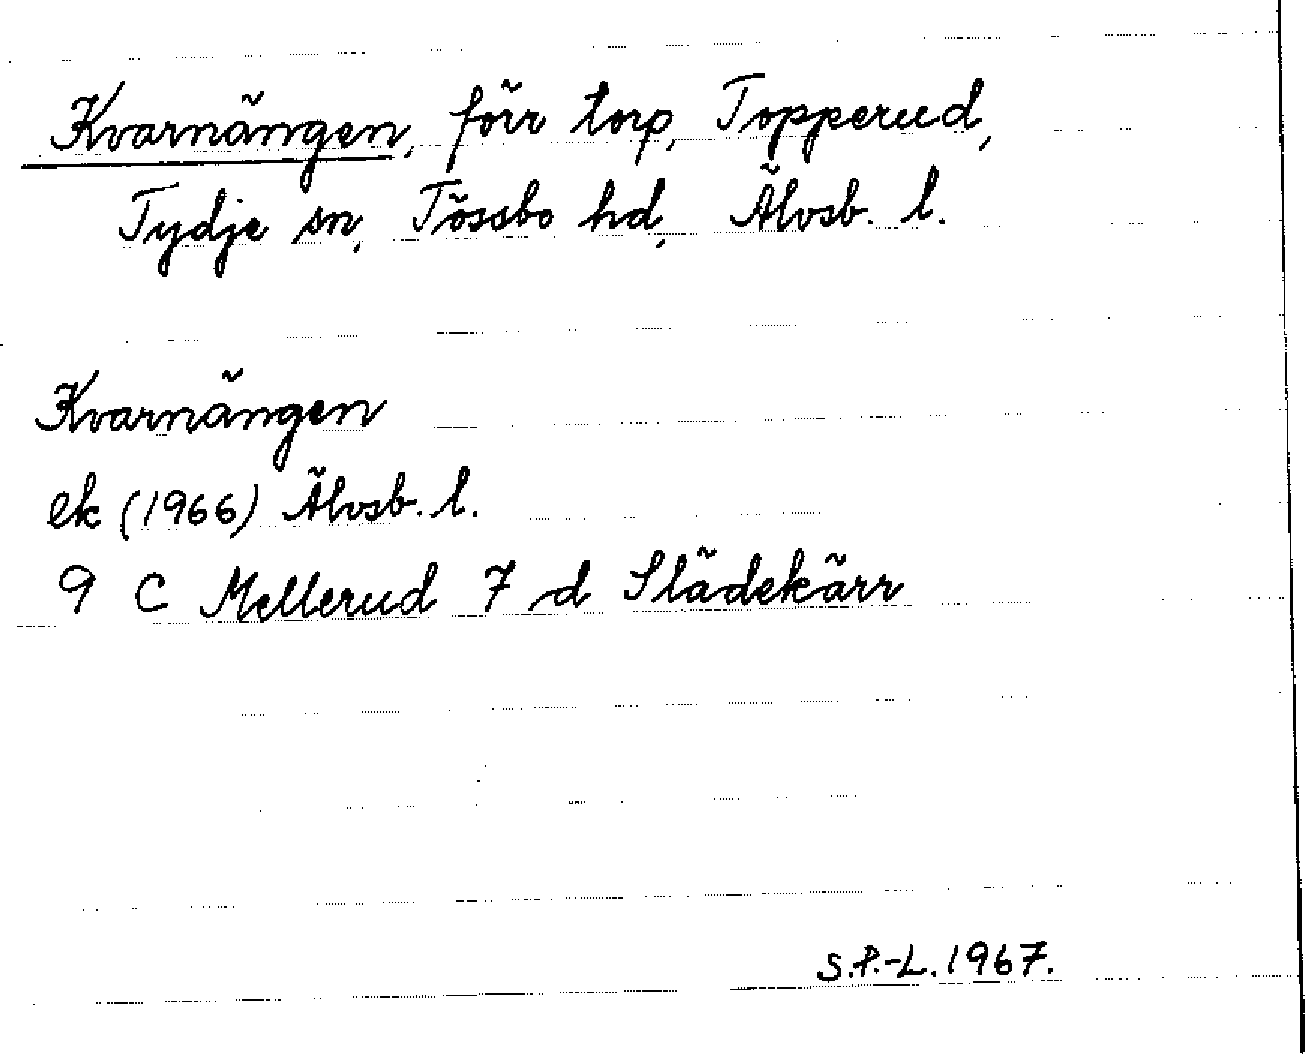 Kvarnängen, förr torp, Topperud,
Tydje sn, Tössbo hd, Älvsb. l.
Kvarnängen
ek (1966) Älvsb. l.
9 C Mellerud 7 d Slädekärr
S.P.-L. 1967.